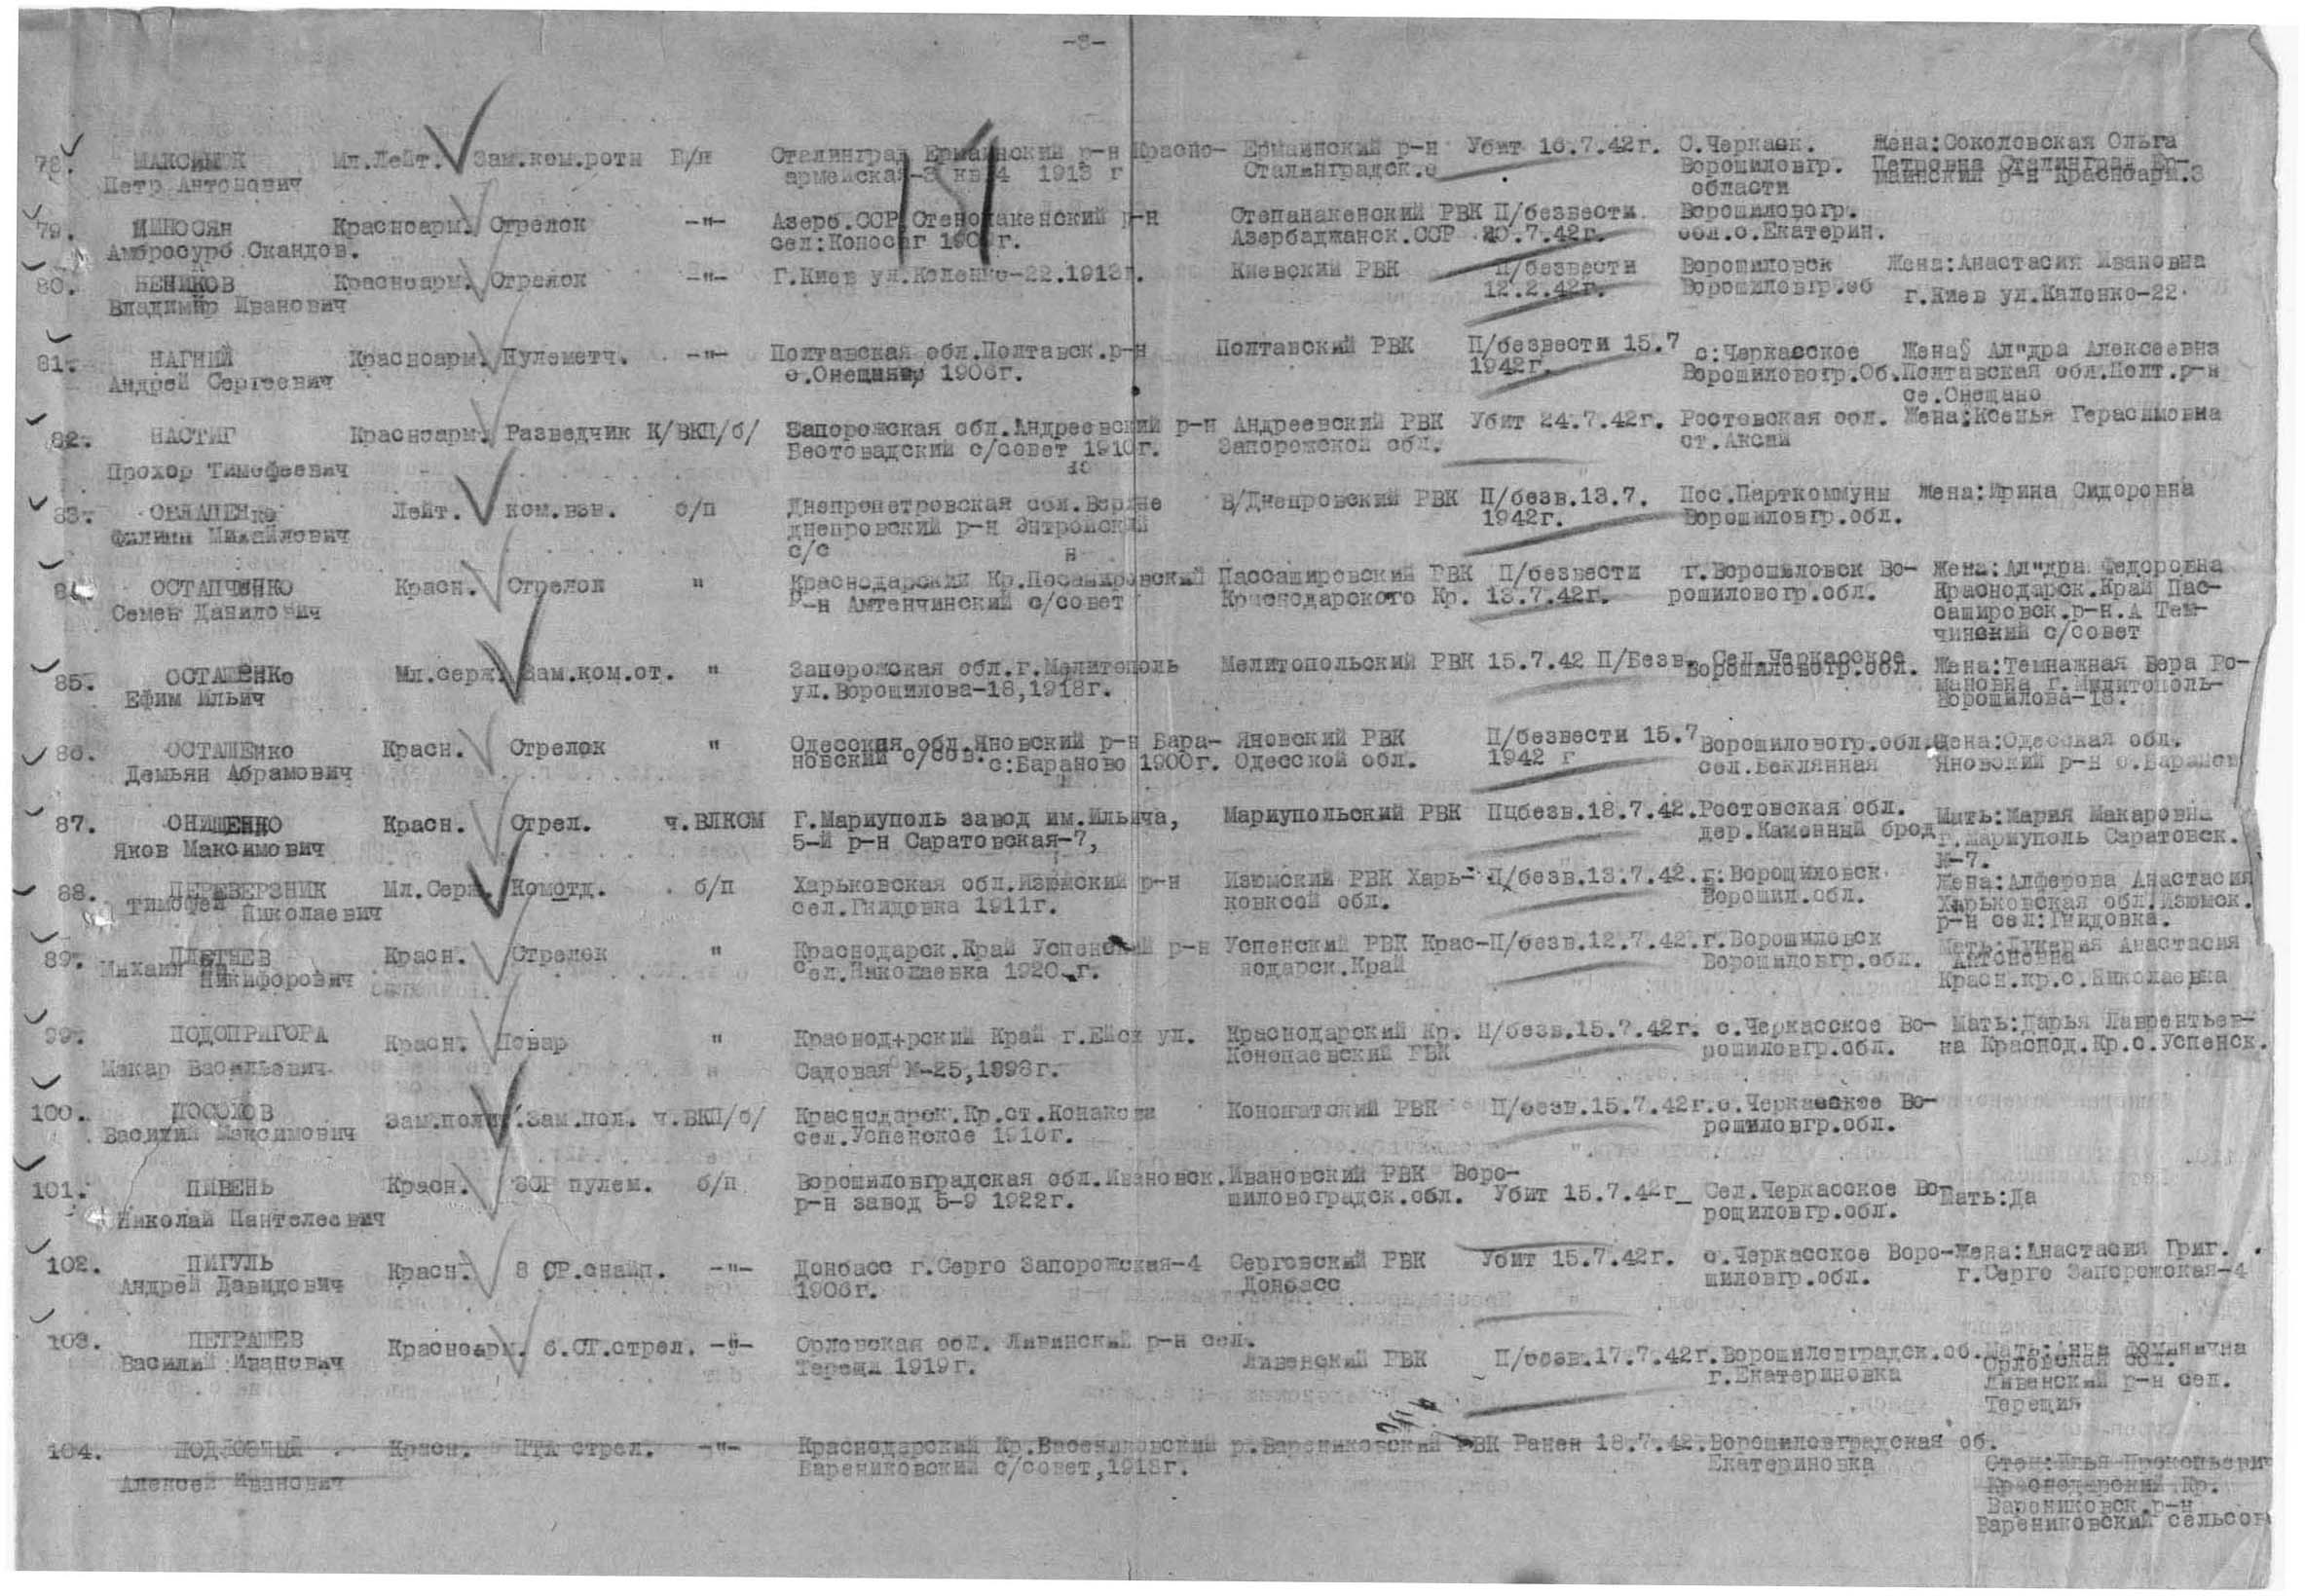 -8-
78. МАКСИМЮК Мл.Лейт. Зам.ком.роти Б/п Сталинград Ермаинский р-н Красно- Ермаинский р-н Убит 16.7.42г. С.Черкаск. Жена:Соколовская Ольга
Петр Антонович армейская-3 кв 4 1913 г Сталинградск.о Ворошиловгр. Петровна Сталинград Ер-
области маинский р-н Красноарм.3
79. Красноарм. Стрелок -"- Азерб.ССР Степонакенский р-н Степанакенский РВК П/безвести Ворошиловогр.
Амбросурб Скандов. сел: г. Азербаджанск.ССР 20.7.42г. обл.с.Екатерин.
80. НЕНИКОВ Красноарм. Стрелок -"- Г.Киев ул. -22.1913г. Киевский РВК П/безвести Ворошиловск Жена:Анастасия Ивановна
Владимир Иванович 12.2.42г. Ворошиловгр.об г.Киев ул.Каленко-22.
81. НАГНИЙ Красноарм. Пулеметч. -"- Полтавская обл.Полтавск.р-н Полтавский РВК П/безвести 15.7 с:Черкасское Жена Ал"дра Алексеевна
Андрей Сергеевич 1906г. 1942г. Ворошиловогр.Об. Полтавская обл.Полт.р-н
се.Онещано
82. НАСТИГ Красноарм. Разведчик К/ВКП/б/ Запорожская обл.Андреевский р-н Андреевский РВК Убит 24.7.42г. Ростовская обл. Жена:Ксенья Герасимовна
Бестовадский с/совет 1910г. Запорожской обл. ст.Аксай
Прохор Тимофеевич
83. Лейт. ком.взв. б/п Днепропетровская обл.Верхне В/Днепровский РВК П/безв.13.7. Пос.Парткоммуны Жена:Ирина Сидоровна
Филипп Михайлович днепровский р-н 1942г. Ворошиловгр.обл.
с/с
84. ОСТАПЧЕНКО Красн. Стрелок " Краснодарский Кр. Пассашировский РВК П/безвести г.Ворошиловск Во- Жена:Ал"дра Федоровна
Семен Данилович р-н Амтенчинский с/совет Краснодарского Кр. 13.7.42г. рошиловогр.обл. Краснодарск.Край Пас-
сашировск.р-н.А Тем-
чинский с/совет
85. ОСТАШЕНКо Мл.серж. Зам.ком.от. " Запорожская обл.г.Мелитополь Мелитопольский РВК 15.7.42 П/Безв. Сел.Черкасское Жена:Темнажная Вера Ро-
Ефим Ильич ул.Ворошилова-18,1918г. Ворошиловогр.обл. мановна г.Милитополь-
Ворошилова-18.
86. ОСТАШЕНко Красн. Стрелок " Одесская обл.Яновский р-н Бара- Яновский РВК П/безвести 15.7 Ворошиловогр.обл. Жена:Одесская обл.
Демьян Абрамович новский с/сов. с:Бараново 1900г. Одесской обл. 1942 г сел.Беклянная Яновский р-н с.
87. ОНИЩЕНКО Красн. Стрел. ч.ВЛКСМ Г.Мариуполь завод им.Ильича, Мариупольский РВК Пцбезв.18.7.42. Ростовская обл. Мать:Мария Макаровна
Яков Максимович 5-й р-н Саратовская-7, дер.Каменный брод Г.Мариуполь Саратовск.
№-7.
88. ПЕРЕВЕРЗНИК Мл.Серж. Комотд. б/п Харьковская обл.Изюмский р-н Изюмский РВК Харь- П/безв.13.7.42. г:Ворошиловск Жена:Алферова Анастасия
Тимофей Николаевич сел.Гнидовка 1911г. ковксой обл. Ворошил.обл. Харьковская обл.Изюмск.
р-н сел:Гнидовка.
89. ПЛЕТНЕВ Красн. Стрелок " Краснодарск.Край Успенский р-н Успенский РВК Крас- П/безв.12.7.42. г.Ворошиловск Мать: Анастасия
Михаил Никифорович сел.Николаевка 1920 г. нодарск.Край Ворошиловгр.обл. Антоновна
Красн.кр.с.Николаевна
99. ПОДОПРИГОРА Красн. Повар " Краснод+рский Край г.Ейск ул. Краснодарский Кр. П/безв.15.7.42г. с.Черкасское Во- Мать:Дарья Лаврентьев-
Макар Васильевич Садовая №-25,1898г. РВК рошиловгр.обл. на Краснод.Кр.с.Успенск.
100. ПОСОХОВ Зам.полит. Зам.пол. ч.ВКП/б/ Краснодарск.Кр.ст. РВК П/безв.15.7.42г. с.Черкасское Во-
Василий Максимович сел.Успенское 1916г. рошиловгр.обл.
101. ПИВЕНЬ Красн. ЗСР пулем. б/п Ворошиловградская обл.Ивановск. Ивановский РВК Воро- Убит 15.7.42г_ Сел.Черкасское Во Мать:Да
Николай Пантелеевич р-н завод 5-9 1922г. шиловоградск.обл. рошиловгр.обл.
102. ПИГУЛЬ Красн. 8 СР.снайп. -"- Донбасс г.Серго Запорожская-4 Серговский РВК Убит 15.7.42г. с.Черкасское Воро- Жена:Анастасия Григ.
Андрей Давидович 1906г. Донбасс шиловгр.обл. г.Серго Запорожская-4
103. ПЕТРАШЕВ Красноарм. б.СТ.стрел. -"- Орловская обл. Ливинский р-н сел. Ливенский РВК П/безв.17.7.42г. Ворошиловградск.об. Мать:Анна
Василий Иванович Терещи 1919г. г.Екатериновка Орловская обл.
Ливенский р-н сел.
Терещия
104. Красн. ПТА стрел. -"- Краснодарский Кр. р. Варениковский РВК Ранен 18.7.42. Ворошиловградская об.
Алексей Иванович Варениковский с/совет,1918г. Екатериновка Отец:Илья Прокопьевич
Краснодарский Кр.
Варениковск.р-н
Варениковский сельсов